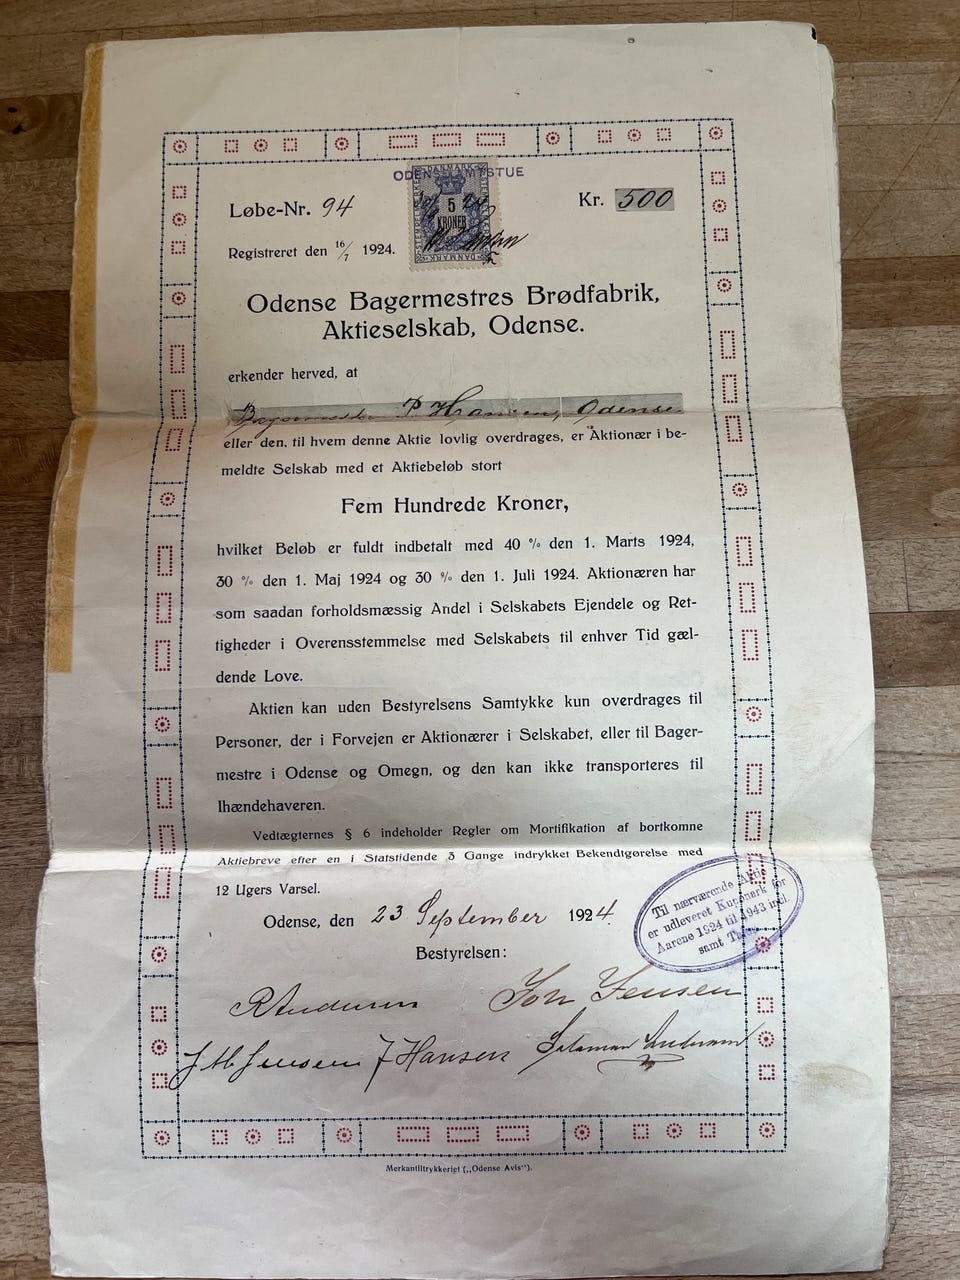 ODENSE AMTSTUE
DANMARK
5
KRONER
DANMARK
Løbe-Nr. 94
Kr. 500
Registreret den 16/7 1924.
Odense Bagermestres Brødfabrik,
Aktieselskab, Odense.
erkender herved, at
Bagermester P Hansen, Odense
eller den, til hvem denne Aktie lovlig overdrages, er Aktionær i be-
meldte Selskab med et Aktiebeløb stort
Fem Hundrede Kroner,
hvilket Beløb er fuldt indbetalt med 40 % den 1. Marts 1924,
30 % den 1. Maj 1924 og 30 % den 1. Juli 1924. Aktionæren har
som saadan forholdsmæssig Andel i Selskabets Ejendele og Ret-
tigheder i Overensstemmelse med Selskabets til enhver Tid gæl-
dende Love.
Aktien kan uden Bestyrelsens Samtykke kun overdrages til
Personer, der i Forvejen er Aktionærer i Selskabet, eller til Bager-
mestre i Odense og Omegn, og den kan ikke transporteres til
Ihændehaveren.
Vedtægternes § 6 indeholder Regler om Mortifikation af bortkomne
Aktiebreve efter en i Statstidende 3 Gange indrykket Bekendtgørelse med
12 Ugers Varsel.
Til nærværende Aktie
er udleveret Kuponark for
Aarene 1924 til 1943 incl.
samt
Odense, den 23 September 1924
Bestyrelsen:
R Andersen
Joh Jensen
J M Jensen
J Hansen
Salaman Andersen
Merkantiltrykkeriet („Odense Avis“).